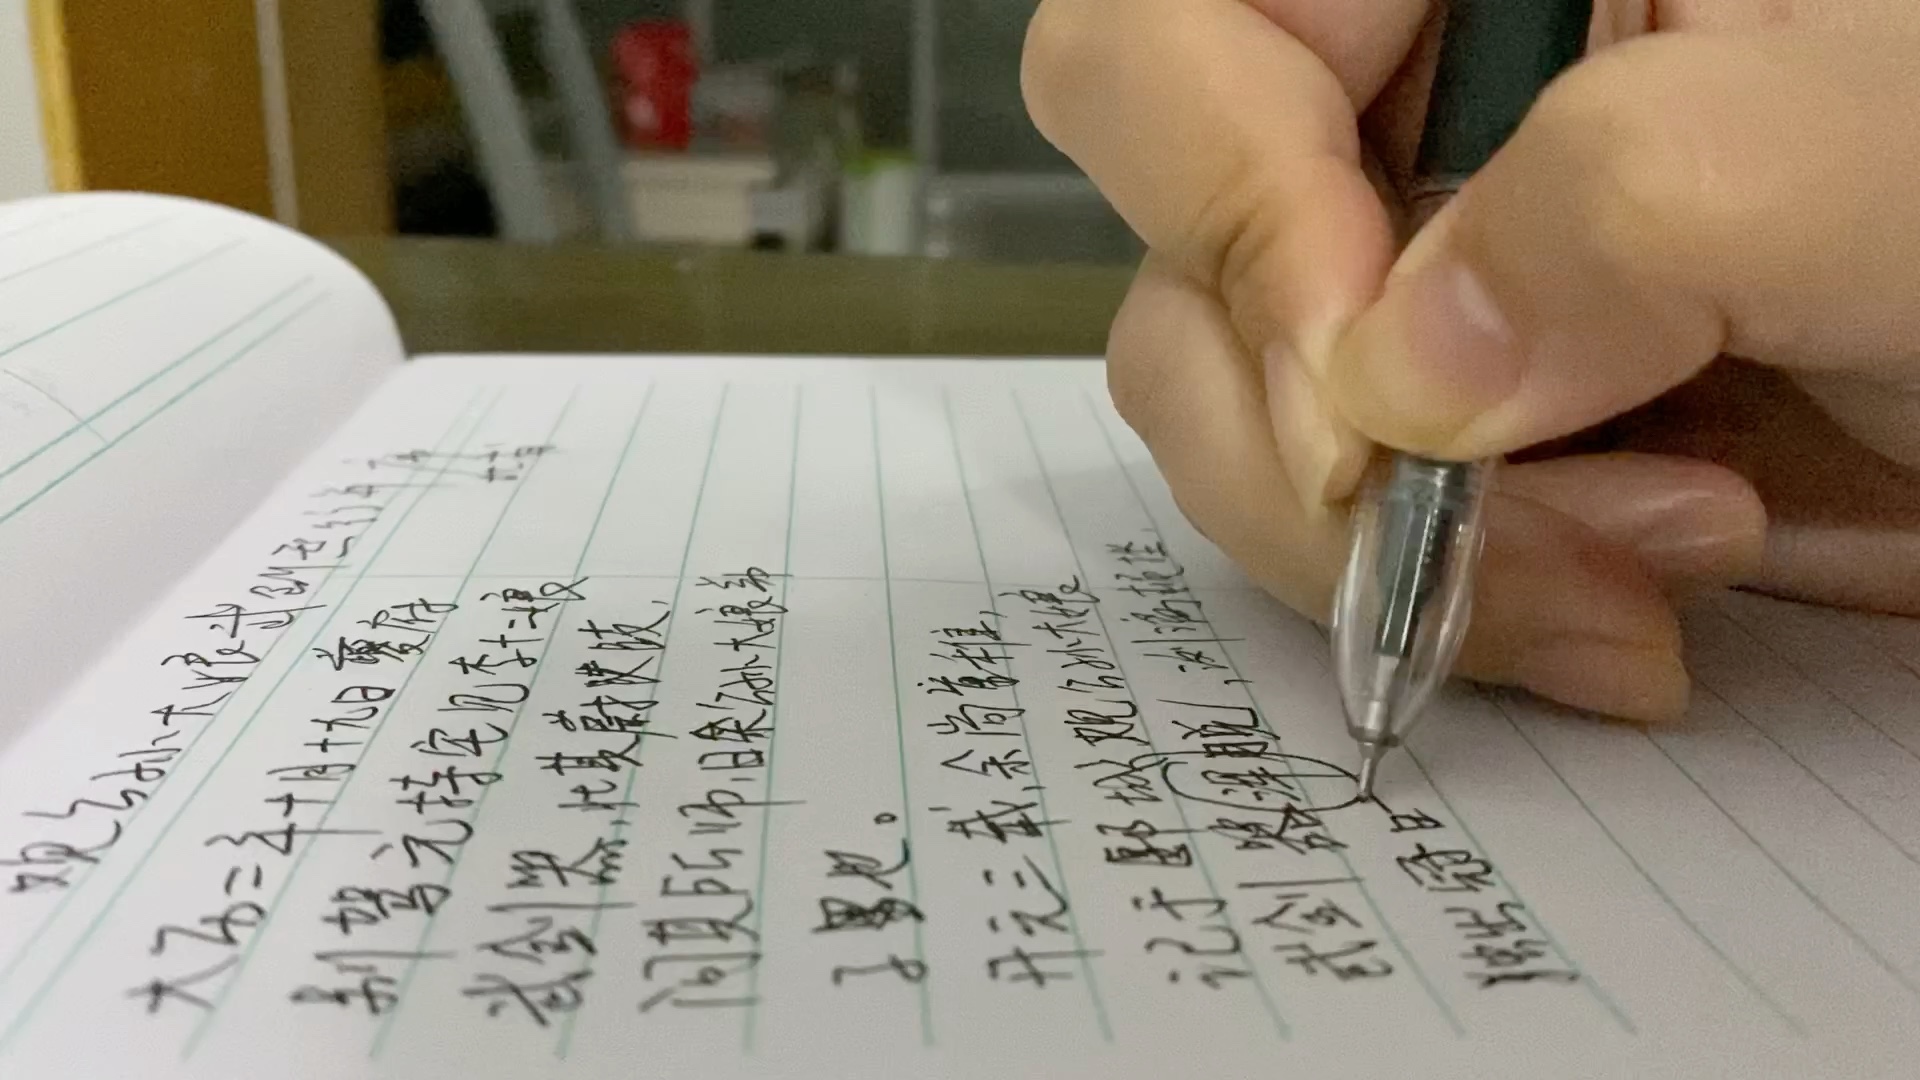 观公孙大娘弟子舞剑器行 并序
大历二年十月十九日夔府
别驾元持宅见李十二娘
舞剑器,壮其蔚跂,
问其所师,曰余公孙大娘弟
子也。
开元三载,余尚童稚,
记于郾城观公孙大娘
舞剑器浑脱,浏漓顿挫,
独出冠